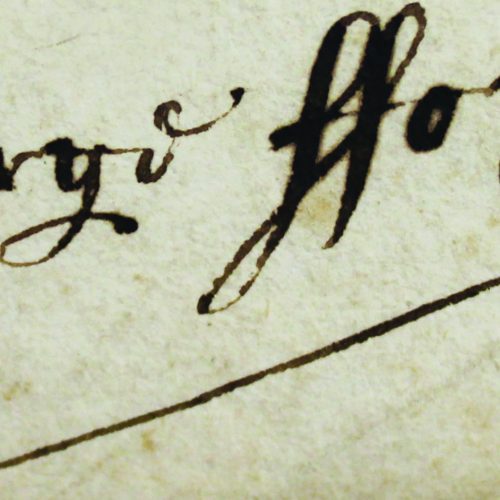 rge ffo